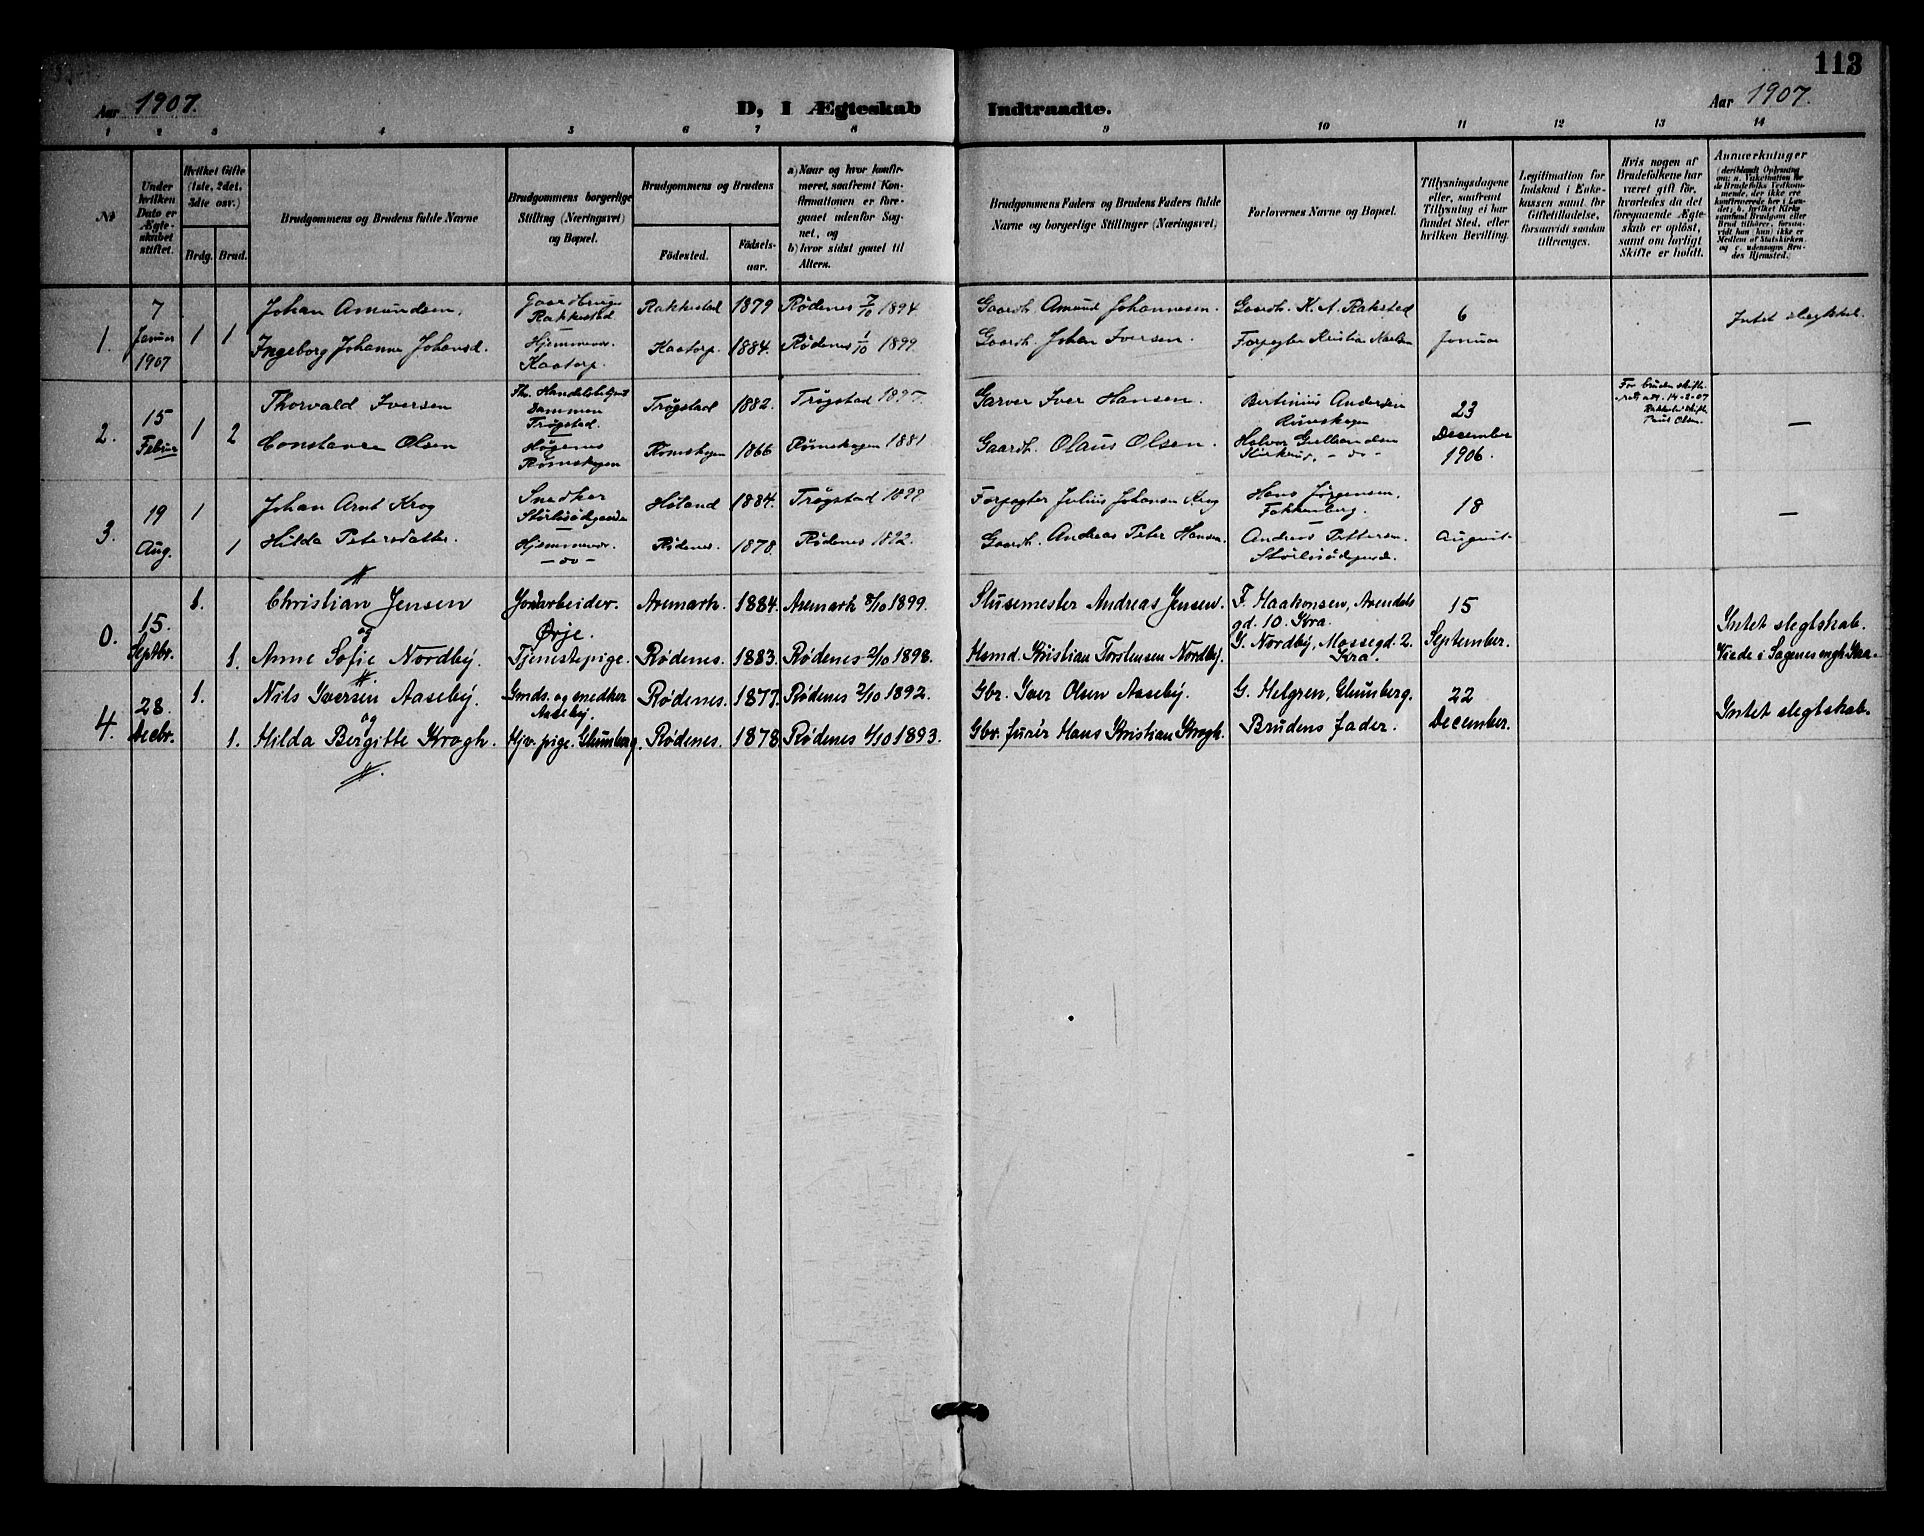 113
Aar 1907.
D, I Ægteskab Indtraadte.
Aar 1907.
1 2 3 4 5 6 7 8 9 10 11 12 13 14
№
Under hvilken Dato er Ægteskabet stiftet.
Hvilket Gifte (1ste, 2det, 3dte osv.)
Brdg. Brud.
Brudgommens og Brudens fulde Navne
Brudgommens borgerlige Stilling (Næringsvei) og Bopæl.
Brudgommens og Brudens
Födested.
Födselsaar.
a) Naar og hvor konfirmeret, saafremt Konfirmationen er foregaaet udenfor Sognet, og
b) hvor sidst gaaet til Alters.
Brudgommens Faders og Brudens Faders fulde Navne og borgerlige Stillinger (Næringsvei)
Forlovernes Navne og Bopæl.
Tillysningsdagene eller, saafremt Tillysning ei har fundet Sted, efter hvilken Bevilling.
Legitimation for Indskud i Enkekassen samt for Giftetilladelse, forsaavidt saadan tiltrænges.
Hvis nogen af Brudefolkene har været gift för, hvorledes da det foregaaende Ægteskab er oplöst, samt om lovligt Skifte er holdt.
Anmerkninger
1. 7 Januar 1907 1 1
Johan Amundsen. Rakkestad 1879 Rødenes 7/10 1894 Gaardb. Amund Johannesen. Gaardb. K. A. Rakstad 6 Januar
Ingeborg Johanne Johansd. Hjemmevær. Kaatorp. Kaatorp. 1884. Rødenes 1/10 1899. Gaardb. Johan Iversen. Forpagter Kristian Intet slegtskab.
2. 15 Februar 1 2
Thorvald Iversen Trøgstad. Trøgstad 1882. Trøgstad 1897 Garver Iver Hansen. Bertinius Andersen Rømskogen 23 December 1906.
Constance Olsen Rømskogen Romskogen 1866 Rømskogen 1881 Gaardb. Olaus Olsen. Halvor Kirkerud, -do- —
3. 19 Aug. 1 1
Johan Arnt Krog Snedker Høland 1884. Trøgstad 1899 Forpagter Julius Johansen Krog Hans Jørgensen, 18 August
Hilda Petersdatter. Hjemmevær. -do- Rødenes. 1878. Rødenes 1892. Gaardb. Andreas Peter Hansen. Andreas Pettersen —
0. 15. Septbr. 1. 1.
Christian Jensen Jordarbeider. Ørje. Aremark. 1884. Aremark 8/10 1899. Slusemester Andreas Jensen. F. Haakonsen, Arendals gd. 10. Kra. 15 September.
og
Anne Sofie Nordby. Tjenestepige. Rødenes. 1883. Rødenes 2/10 1898. Hsmd. Kristian Torstensen Nordby. G. Nordby, Mossegd. 2. Kra. Intet slegtskab. Viede i Sagenes mgh. Kra.
4. 28. Decbr. 1. 1.
Nils Iversen Aaseby. Gmds. og snedker Aaseby. Rødenes. 1877. Rødenes 2/10 1892. Gbr. Iver Olsen Aaseby. G. Helgren, Glumberg. 22 December. Intet slegtskab.
og
Hilda Bergitte Krogh. Hjv. pige. Glumberg. Rødenes. 1878. Rødenes 1/10 1893. Gbr. furér Hans Kristian Krogh. Brudens fader.